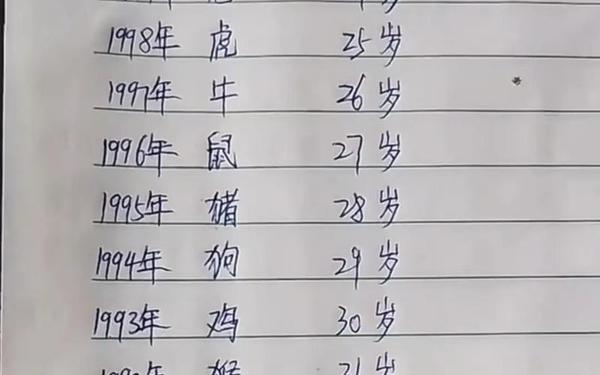 1998年 虎 25岁
1997年 牛 26岁
1996年 鼠 27岁
1995年 猪 28岁
1994年 狗 29岁
1993年 鸡 30岁
猴 31岁